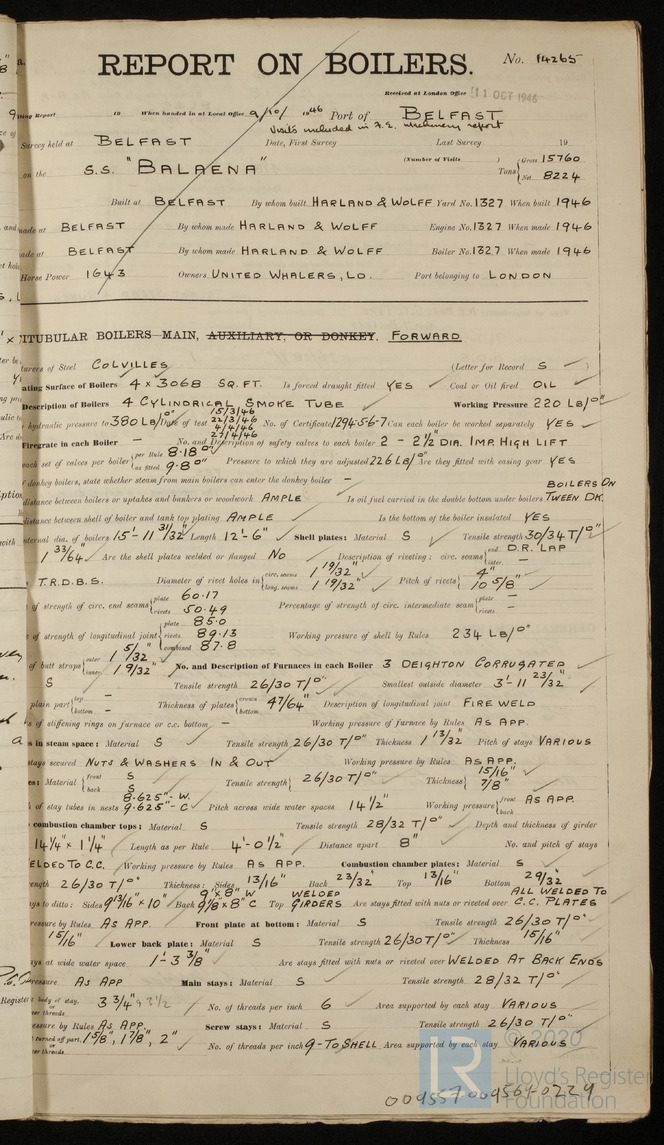 REPORT ON BOILERS. No. 14265
Received at London Office 11 OCT 1946
ing Report 19 When handed in at Local Office 9/10/1946 Port of BELFAST
Visits included in F.E. machinery report
Survey held at BELFAST Date, First Survey Last Survey 19
on the S.S. "BALAENA" (Number of Visits Tons { Gross 15760
Net 8224
Built at BELFAST By whom built HARLAND & WOLFF Yard No. 1327 When built 1946
made at BELFAST By whom made HARLAND & WOLFF Engine No. 1327 When made 1946
ade at BELFAST By whom made HARLAND & WOLFF Boiler No. 1327 When made 1946
Horse Power 1643 Owners UNITED WHALERS, LD. Port belonging to LONDON
ITUBULAR BOILERS MAIN, AUXILIARY, OR DONKEY. FORWARD
turers of Steel COLVILLES (Letter for Record S
ating Surface of Boilers 4 x 3068 SQ. FT. Is forced draught fitted YES Coal or Oil fired OIL
Description of Boilers 4 CYLINDRICAL SMOKE TUBE Working Pressure 220 LB/□"
15/3/46
22/3/46
4/4/46
27/4/46
hydraulic pressure to 380 LB/□" Date of test No. of Certificate 1294-5-6-7 Can each boiler be worked separately YES
Firegrate in each Boiler — No. and Description of safety valves to each boiler 2 - 2½" DIA. IMP. HIGH LIFT
each set of valves per boiler { per Rule 8.18 □"
as fitted 9.8 □" Pressure to which they are adjusted 226 LB/□" Are they fitted with easing gear YES
donkey boilers, state whether steam from main boilers can enter the donkey boiler —
distance between boilers or uptakes and bunkers or woodwork AMPLE Is oil fuel carried in the double bottom under boilers BOILERS ON TWEEN DK.
distance between shell of boiler and tank top plating AMPLE Is the bottom of the boiler insulated YES
ternal dia. of boilers 15'-11 31/32" Length 12'-6" Shell plates: Material S Tensile strength 30/34 T/□"
1 33/64" Are the shell plates welded or flanged NO Description of riveting: circ. seams { end D.R. LAP
inter. —
T.R.D.B.S. Diameter of rivet holes in { circ. seams 1 19/32"
long. seams 1 19/32" Pitch of rivets { 4"
10 5/8"
of strength of circ. end seams { plate 60.17
rivets 50.49 Percentage of strength of circ. intermediate seam { plate —
rivets —
of strength of longitudinal joint { plate 85.0
rivets 89.13
combined 87.8 Working pressure of shell by Rules 234 LB/□"
of butt straps { outer 1 5/32"
inner 1 9/32" No. and Description of Furnaces in each Boiler 3 DEIGHTON CORRUGATED
S Tensile strength 26/30 T/□" Smallest outside diameter 3'-11 23/32"
plain part { top —
bottom — Thickness of plates { crown
bottom 47/64" Description of longitudinal joint FIRE WELD
s of stiffening rings on furnace or c.c. bottom — Working pressure of furnace by Rules AS APP.
s in steam space: Material S Tensile strength 26/30 T/□" Thickness 1 13/32" Pitch of stays VARIOUS
stays secured NUTS & WASHERS IN & OUT Working pressure by Rules AS APP.
es: Material { front S
back S Tensile strength { 26/30 T/□" Thickness { 15/16"
7/8"
h of stay tubes in nests 8.625" - W.
9.625" - C Pitch across wide water spaces 14½" Working pressure { front
back AS APP.
combustion chamber tops: Material S Tensile strength 28/32 T/□" Depth and thickness of girder
14¼" x 1¼" Length as per Rule 4'-0½" Distance apart 8" No. and pitch of stays
ELDED TO C.C. Working pressure by Rules AS APP. Combustion chamber plates: Material S
ength 26/30 T/□" Thickness: Sides 13/16" Back 23/32" Top 13/16" Bottom 29/32"
ays to ditto: Sides 9 3/16" x 10" Back 9" x 8" W
9 1/8" x 8" C Top WELDED GIRDERS Are stays fitted with nuts or riveted over ALL WELDED TO C.C. PLATES
ressure by Rules AS APP. Front plate at bottom: Material S Tensile strength 26/30 T/□"
15/16" Lower back plate: Material S Tensile strength 26/30 T/□" Thickness 15/16"
ys at wide water space 1'-3 3/8" Are stays fitted with nuts or riveted over WELDED AT BACK ENDS
ressure AS APP Main stays: Material S Tensile strength 28/32 T/□"
body of stay, 3¾" & 3½ No. of threads per inch 6 Area supported by each stay VARIOUS
over threads
essure by Rules AS APP. Screw stays: Material S Tensile strength 26/30 T/□"
turned off part, 1 5/8", 1 7/8", 2" No. of threads per inch 9 - TO SHELL Area supported by each stay VARIOUS
over threads
© 2020
Lloyd's Register
Foundation
009557-009564-0229